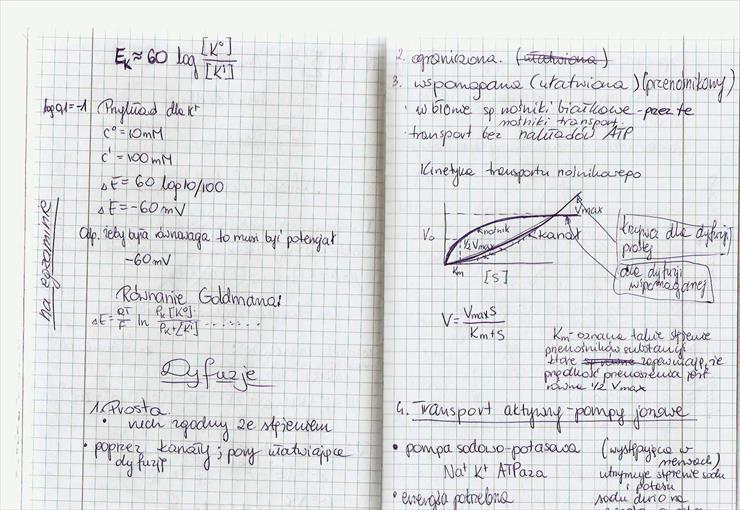 E_K ≈ 60 log [K°]/[Kⁱ]
log 0,1 = -1 Przykład dla K⁺
c° = 10 mM
cⁱ = 100 mM
ΔE = 60 log 10/100
ΔE = -60 mV
Odp. żeby była równowaga to musi być potencjał
-60 mV
na egzaminie
Równanie Goldmana:
ΔE = RT/F ln
Dyfuzje
1. Prosta
• ruch zgodny ze stężeniem
• poprzez kanały i pory ułatwiające
dyfuzję
2. ograniczona. (ułatwiona)
3. wspomagana (ułatwiona) (przenośnikowy)
· w błonie są nośniki białkowe - przez te
nośniki transport.
· transport bez nakładów ATP
Kinetyka transportu nośnikowego
Vmax
V₀
nośnik
kanał
½ Vmax
Km
[S]
krzywa dla dyfuzji
prostej
dla dyfuzji
wspomaganej
V = Vmax S / Km + S
Km - oznacza takie stężenie
przenośników substancji
które zapewniają, że
prędkość przenoszenia jest
równa ½ Vmax
4. Transport aktywny - pompy jonowe
• pompa sodowo-potasowa (występująca w
nerwach)
Na⁺ K⁺ ATPaza utrzymuje stężenie sodu
i potasu
• energia potrzebna sodu dużo na